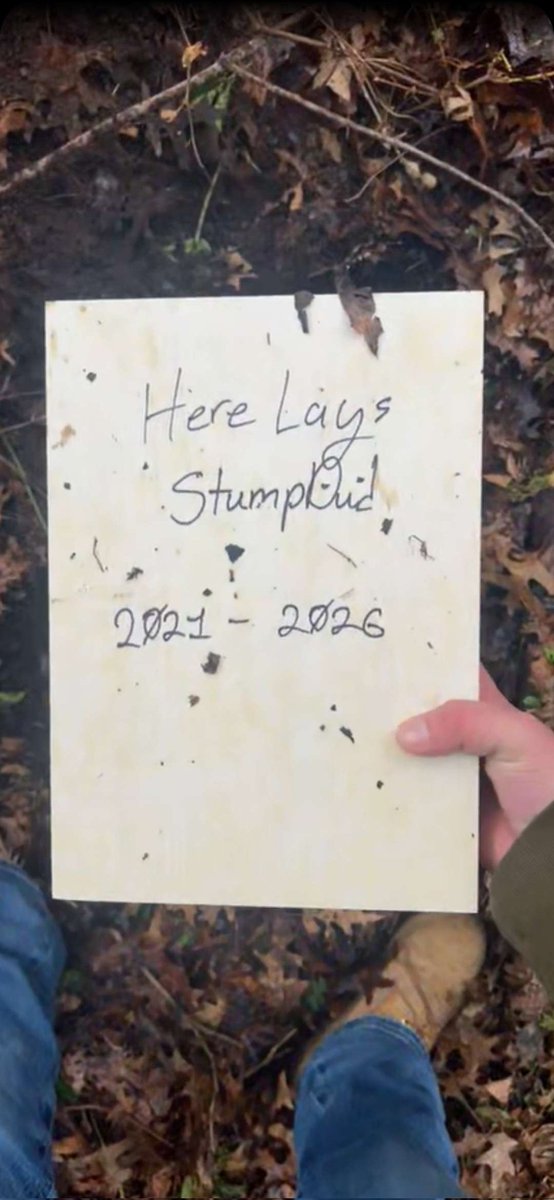 Here Lays
StumpDuid
2021 - 2026